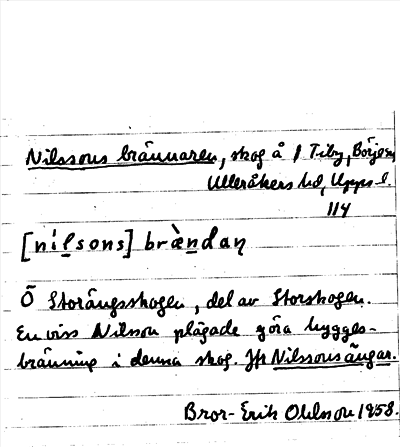 Nilssons brännaren, skog å f Tiby, Börje sn,
Ulleråkers hd, Upps. l.
114
[nilsons] brændaṇ
Ö Storängsskogen, del av Storskogen.
En viss Nilsson plägade göra hygges-
bränning i denna skog. Jfr Nilssons ängar.
Bror-Erik Ohlsson 1958.